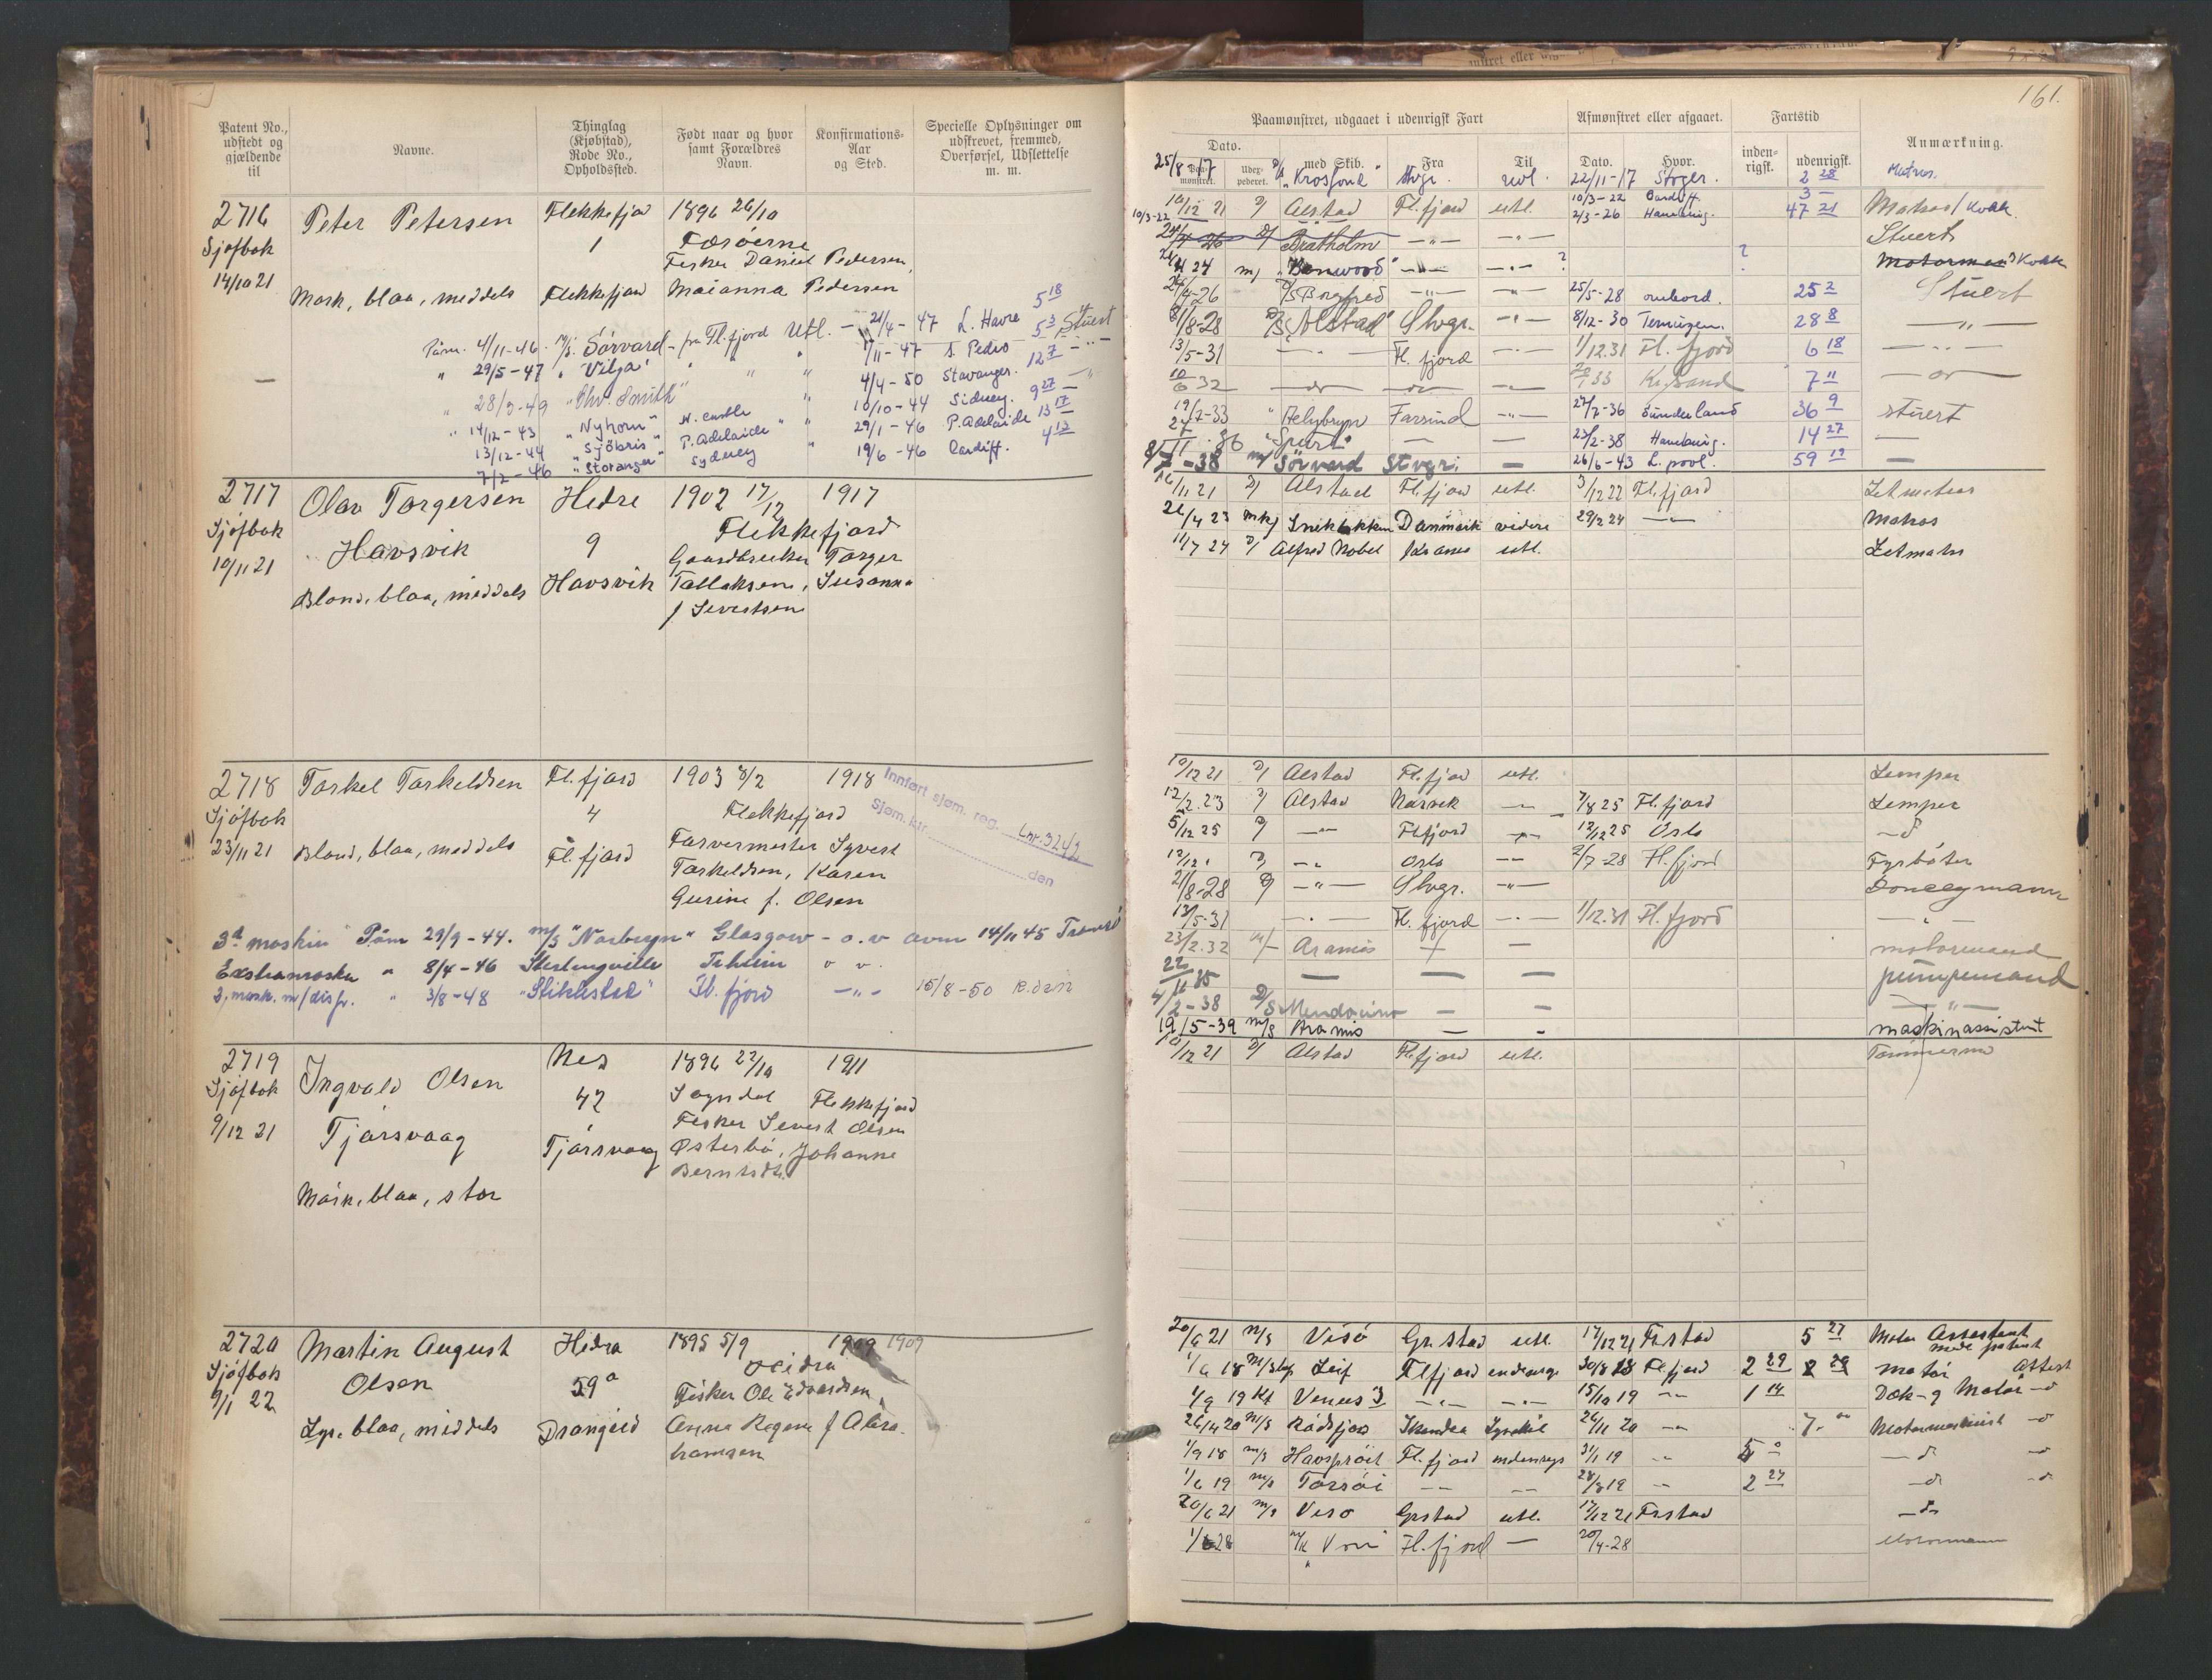 161.
Patent No., udstedt og gjældende til
Navne.
Thinglag (Kjøbstad), Rode No., Opholdssted.
Født naar og hvor samt Forældres Navn.
Konfirmations-Aar og Sted.
Specielle Oplysninger om udskrevet, fremmed, Overførsel, Udslettelse m. m.
Paamønstret, udgaaet i udenrigsk Fart
Afmønstret eller afgaaet.
Fartstid
Anmærkning.
Dato.
med Skib.
Fra
Til
Dato.
Hvor.
inden-rigsk.
udenrigsk.
2716 Peter Petersen Flekkefjord 1896 26/10
Sjøfbok 1 Færøerne
14/10 21 Fisker Daniel Pedersen,
Mørk, blaa, meddels Flekkefjord Maianna Pedersen
5 18
Påm. 4/11-46. M/S. Sörvard - fra Fl.fjord Utl. - 21/4-47 L. Havre 5 3 Stuert
" 29/5-47 " Vilja " " " 1/11-47 S. Pedro 12 7 - " -
" 28/3-49 "Chr. Smith" " 4/4-50 Stavanger. 9 27 -
" 14/12-43 "Nyhorn" N. Castle " 10/10-44 Sidney. 13 17
13/12-44 "Sjöbris" P. Adelaide " 29/1-46 P. Adelaide 4 12
7/2-46 "Storanger" Sydney " 19/6-46 Cardiff.
25/8-17 D/S "Krosfond" Stvgr. utl. 22/11-17 Stvger. 2 28 Matros.
10/12 21 D/ Alstad Fl.fjord utl. 10/3-22 Cardiff. 3 - Matros/Kokk
10/3-22 2/3-26 Hamburg. 47 21
D/ Bratholm - " - - " - Stuert
4 24 m/ "Benwood" - " - - " - ? ? Motormand Kokk
24/4-26 D/S Borgfred - " - - " - 25/5-28 ombord. 25 2 Stuert
8/8-28 D/S "Alstad" Stvgr. - " - 8/12-30 Terningen. 28 8 - " -
13/5-31 - " - Fl. fjord - " - 1/12.31 Fl. fjord 6 18 - " -
10/6 32 - " - - " - - " - 20/1 33 Kr.sand 7 11 - " -
19/7-33 " Helybryn Farsund - " - 27/7-36 Sunderland 36 9 stuert
"Spurt" - - 23/2-38 Hamburg. 14 27 -
-38 m/ Sörvard Stvgr. - 26/6-43 L. pool. 59 19 -
2717 Olav Torgersen Hidre 1902 17/12 1917
Sjøfbok Flekkefjord
10/11 21 Havsvik 9 Gaardbruker Torger
Blond, blaa, meddels Havsvik Tallaksen, Susanna
f Severtsen
16/11 21 D/ Alstad Fl.fjord utl. 3/12 22 Fl.fjord Letmatros
26/4 23 mk/ Danmark videre 29/2 24 - " - Matros
11/7 24 D/ Alfred Nobel utl. Letmatr
2718 Torkel Torkeldsen Fl.fjord 1903 3/2 1918
Sjøfbok 4 Flekkefjord
Innført sjøm. reg. Lnr. 3242
Sjøm.ktr. den
23/11 21 Blond, blaa, meddels Fl.fjord Farvermester Syvert
Torkeldsen, Karen
Gurine f. Olsen
3d maskin Påm 29/9-44. m/S "Norbryn" Glasgow - o.v avm 14/11 45
Exstramaskn " 8/4-46 Sterlingville Trheim o v.
2. mask. m/disp. " 3/8-48 "Stiklestad" Fl. fjord - " - 15/8-50
10/12 21 D/ Alstad Fl.fjord utl. Lemper
12/2 23 D/ Alstad Narvik - " - 7/8 25 Fl.fjord Lemper
5/12 25 D/ - " - Fl.fjord - " - 12/12 25 Oslo - d
D/ - " - Oslo - " - 2/7-28 Fl. fjord Fyrböter
2/8-28 D/ - " - Stvgr. - " - Donkeymann
13/5-31 - " - Fl. fjord - " - 1/12.31 Fl.fjord - " -
23/2.32 m/- Aramis - motormand
- - - pumpemand
2-38 D/S Mendocino - - - " -
19/5-39 m/s Aramis - - maskinassistent
2719 Ingvald Olsen Nes 1896 22/10 1911
Sjøfbok 42 Sogndal Flekkefjord
9/12 21 Tjørsvaag Fisker Severt Olsen
Tjørsvaag Østerbø, Johanne
Berntsdtr.
Mørk, blaa, stor
10/12 21 D/ Alstad Fl.fjord utl. Tømmerm
2720 Martin August Hidra 1895 5/9 1909 1909
Sjøfbok Olsen 59a Hidra
9/1 22 Fisker Ole Edvardsen,
Lys, blaa, middels Drangeid Anna Regine f Abra-
hamsen
20/6 21 m/s Visö Gr.stad utl. 17/12 21 Frstad 5 27 Motor Assestent
med patent
1/6 18 Leif Flfjord 30/8 18 Fl.fjord 2 29 motör Attest
1/9 19 Kt Venus 3 - " - - " - 15/10 19 - " - 1 14 Dæk- g Motör - d
26/4 20 m/s 26/11 20 - " - 7. Motormaskinist - d
1/9 18 m/s Fl.fjord indenrigs 31/1 19 - " - 5 0 - d - d
1/6 19 m/s Torsöi - " - - " - 28/8 19 - " - 2 27 - d - d
20/6 21 m/s Viso Grstad utl. 17/12 21 Frstad - d
28 m/k Fl.fjord - 20/4-28 Motormann